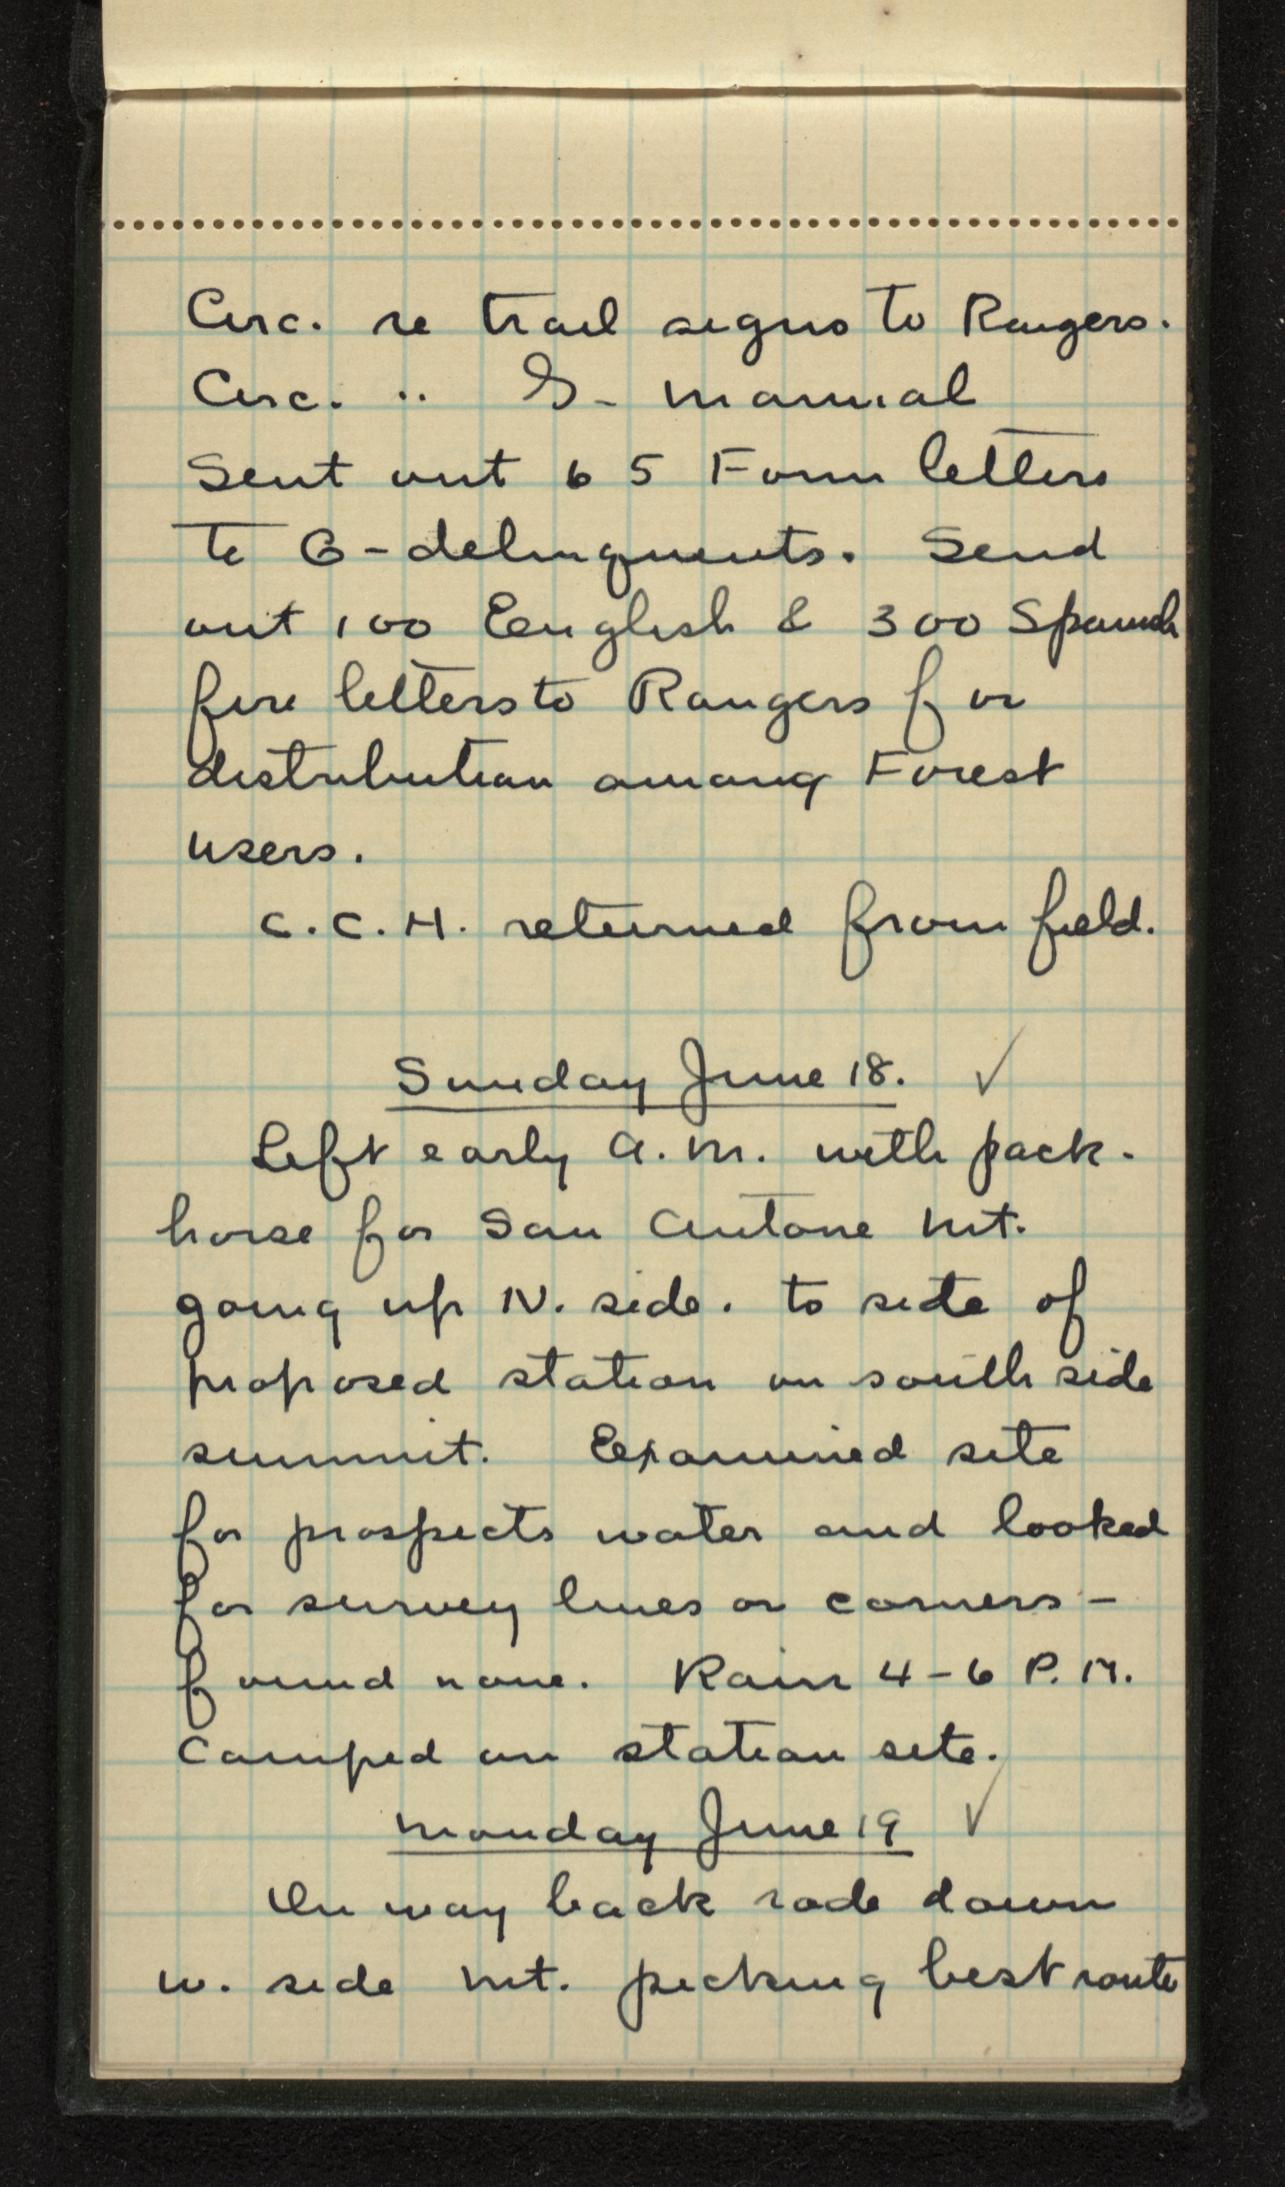 Circ. re trail signs to Rangers.
Circ. " G- manual
Sent out 65 Form letters
to G-delinquents. Send
out 100 English & 300 Spanish
fire letters to Rangers for
distribution among Forest
users.
C.C.H. returned from field.
Sunday June 18. ✓
Left early A.M. with pack-
horse for San Antone Mt.
going up N. side. to site of
proposed station on south side
summit. Examined site
for prospects water and looked
for survey lines or corners -
found none. Rain 4-6 P.M.
Camped on station site.
Monday June 19 ✓
On way back rode down
W. side Mt. picking best route